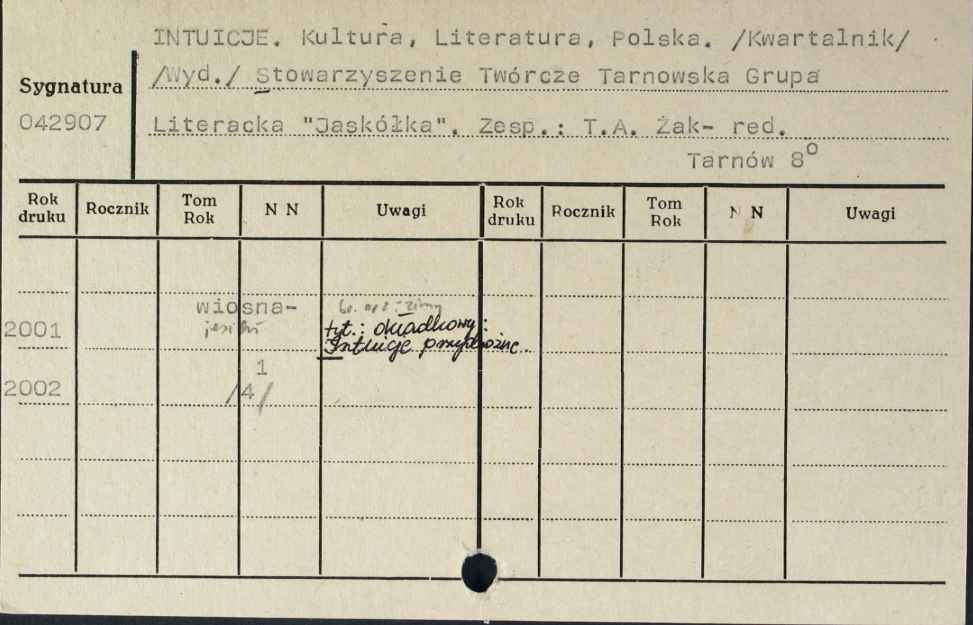 INTUICJE. Kultura, Literatura, Polska. /Kwartalnik/
/Wyd./ Stowarzyszenie Twórcze Tarnowska Grupa
Sygnatura
042907
Literacka "Jaskółka". Zesp.: T.A. Żak- red.
Tarnów 8°
Rok druku Rocznik Tom Rok N N Uwagi Rok druku Rocznik Tom Rok N N Uwagi
wiosna- zimy
2001 jesień tyt.: okładkowy:
Intuicje przydrożne.
1
2002 /4/